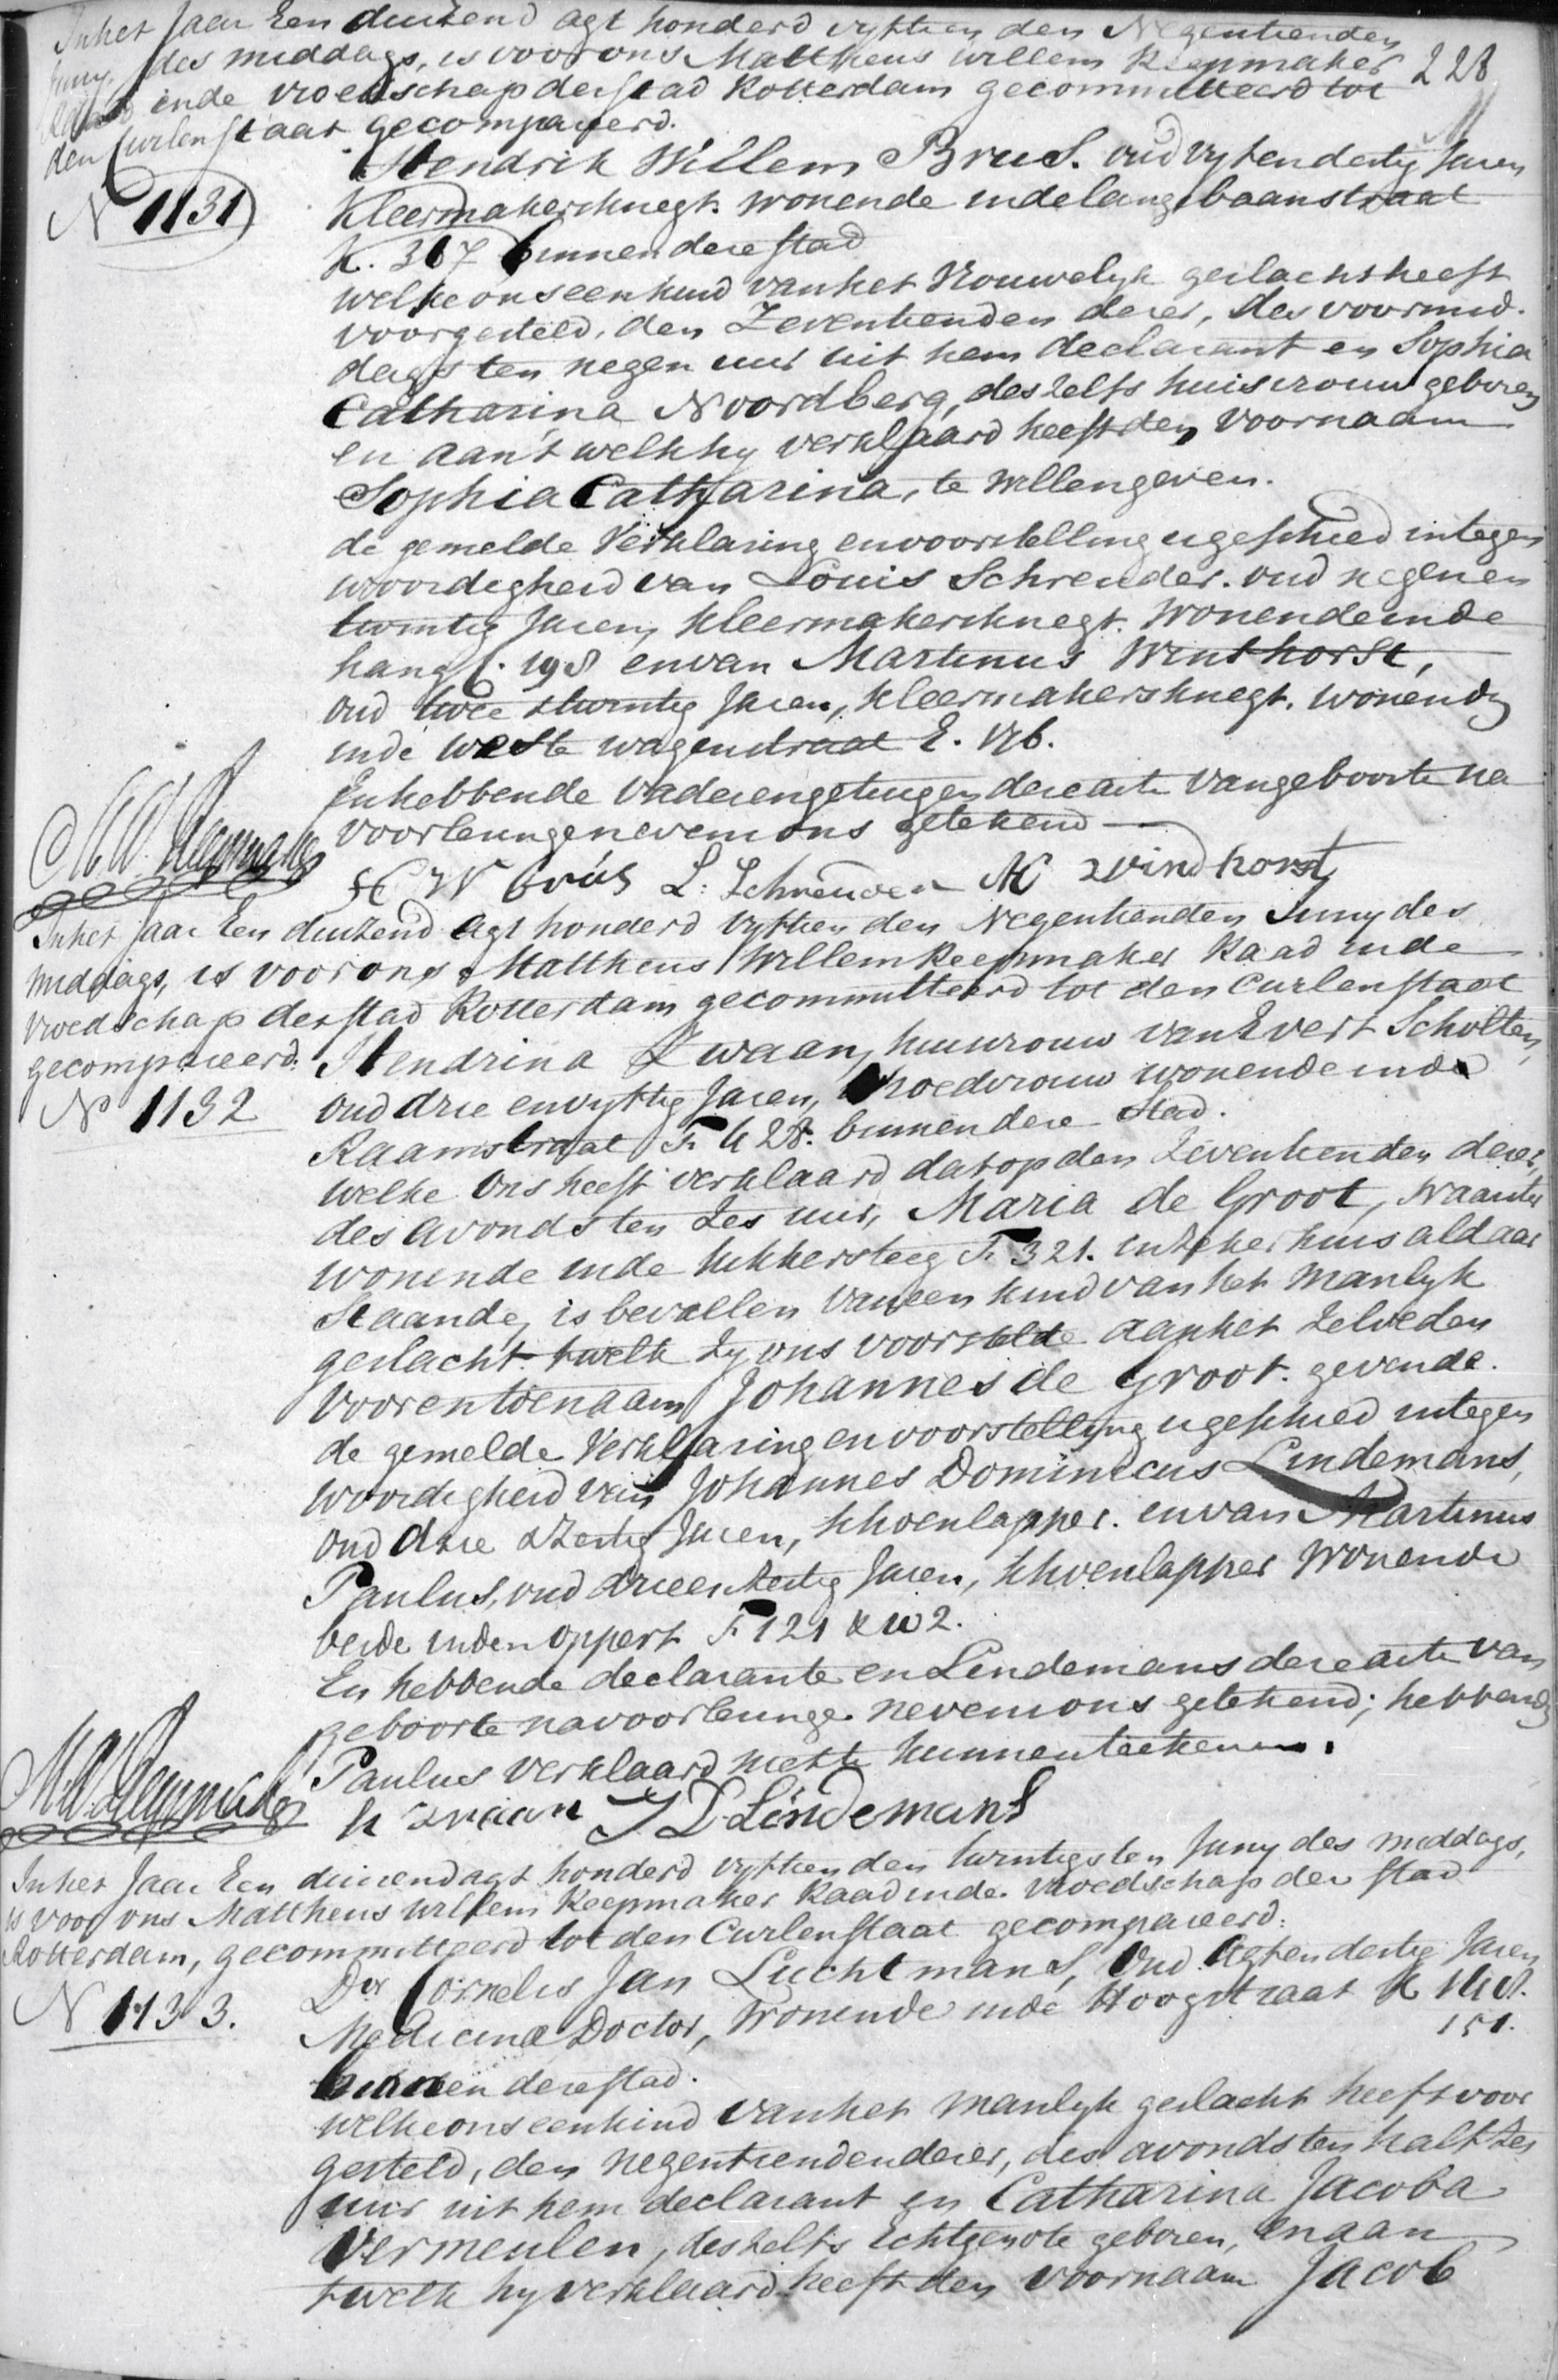 In het Jaar Een duizend agt honderd vyftien den Negentienden
Juny, des middags, is voor ons Mattheus Willem Reepmaker
Raad in de Vroedschap der stad Rotterdam gecommitteerd tot
den Civilen staat gecompareerd.
228
N 1131
Hendrik Willem Brus. oud vyf en dertig Jaren
Kleermakersknegt. wonende in de lange baanstraat
K. 367 binnen deze stad
welke ons een kind van het Vrouwelyk geslacht heeft
voorgesteld, den Zeventienden dezer, des voormid-
dags ten negen uur uit hem declarant en Sophia
Catharina Noordberg, des zelfs huisvrouw geboren
en aan 't welk hy verklaard heeft den voornaam
Sophia Catharina, te willen geven.
de gemelde Verklaring en voorstelling is geschied in tegen
woordigheid van Louis Schreuder. oud negen en
twintig Jaren, Kleermakersknegt. wonende in de
hang C. 198 en van Martinus Winthorst,
oud twee & twintig Jaren, Kleermakersknegt. wonende
in de weste wagenstraat E. 176.
En hebbende Vader en getuigen deze acte van geboorte na
voorlezinge nevens ons getekend
M. W. Reepmaker
H W Brús L: Schreuder M windhorst
In het Jaar Een duizend agt honderd Vyftien den Negentienden Juny des
middags, is voor ons Mattheus Willem Reepmaker Raad in de
vroedschap der stad Rotterdam gecommitteerd tot den Civilen staat
gecompareerd: Hendrina Zwaan, huisvrouw van Evert Scholten,
N 1132
oud drie en vyftig Jaren, Vroedvrouw wonende in de
Raamstraat F. 428. binnen deze Stad.
welke ons heeft verklaard dat op den Zeventienden dezer,
des avonds ten zes uur, Maria de Groot, Naaister
wonende in de kikkersteeg F. 321. in zeker huis aldaar
Staande, is bevallen van een kind van het Manlyk
geslacht. 't welk zy ons voorstelde aan het zelve den
Voor en toenaam Johannes de Groot. gevende.
de gemelde Verklaring en voorstelling is geschied in tegen
woordigheid van Johannes Dominicus Lindemans,
oud drie & zestig Jaren, schoenlapper. en van Martinus
Paulus, oud drie en dertig Jaren, schoenlapper wonende
beide in den oppert F. 121 & 102.
En hebbende declarante en Lindemans deze acte van
geboorte na voorlezinge nevens ons getekend; hebbende
Paulus verklaard niet te kunnen teekenen.
M. W. Reepmaker
h zwaan J D Lindemans
In het Jaar Een duizend agt honderd vyftien den twintigsten Juny des middags,
is voor ons Mattheus Willem Reepmaker Raad in de Vroedschap der stad
Rotterdam, gecommitteerd tot den Civilen staat gecompareerd:
N 1133.
Dr Cornelis Jan Luchtmans, oud Agt en dertig Jaren
Medicinae Doctor, wonende in de Hoogstraat K
151.
binnen deze stad.
welke ons een kind van het Manlyk geslacht heeft voor
gesteld, den negentienden dezer, des avonds ten half zes
uur uit hem declarant en Catharina Jacoba
Vermeulen, des zelfs Echtgenote geboren, en aan
't welk hy verklaard heeft den voornaam Jacob